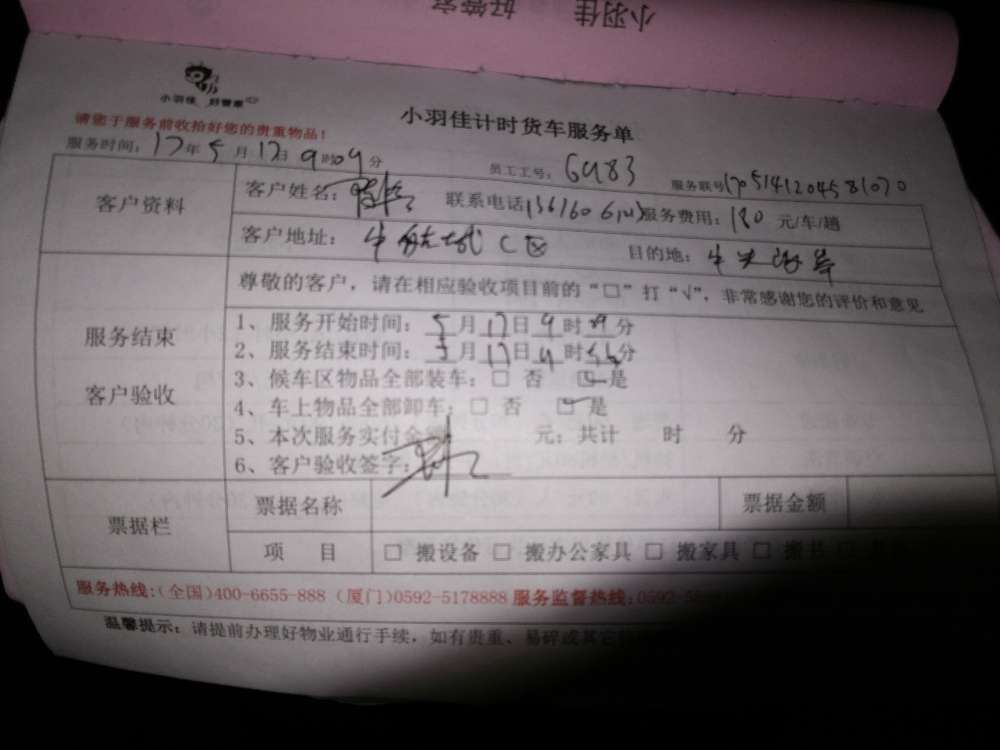 小羽佳 好管家
小羽佳 好管家
小羽佳计时货车服务单
请您于服务前收拾好您的贵重物品!
服务时间: 17年5月17日9时09分 员工工号: 6483 服务联号1705141204581070
客户资料
客户姓名: 联系电话 服务费用: 180 元/车/趟
客户地址: 中航城C区 目的地:
尊敬的客户,请在相应验收项目前的“□”打“√”,非常感谢您的评价和意见
服务结束
客户验收
1、服务开始时间: 5月17日9时09分
2、服务结束时间: 5月17日 时 分
3、候车区物品全部装车: □ 否 □ 是
4、车上物品全部卸车: □ 否 □ 是
5、本次服务实付金额 元; 共计 时 分
6、客户验收签字:
票据栏
票据名称 票据金额
项 目 □ 搬设备 □ 搬办公家具 □ 搬家具 □ 搬书 □
服务热线:(全国)400-6655-888 (厦门)0592-5178888 服务监督热线:0592-
温馨提示: 请提前办理好物业通行手续,如有贵重、易碎或其它